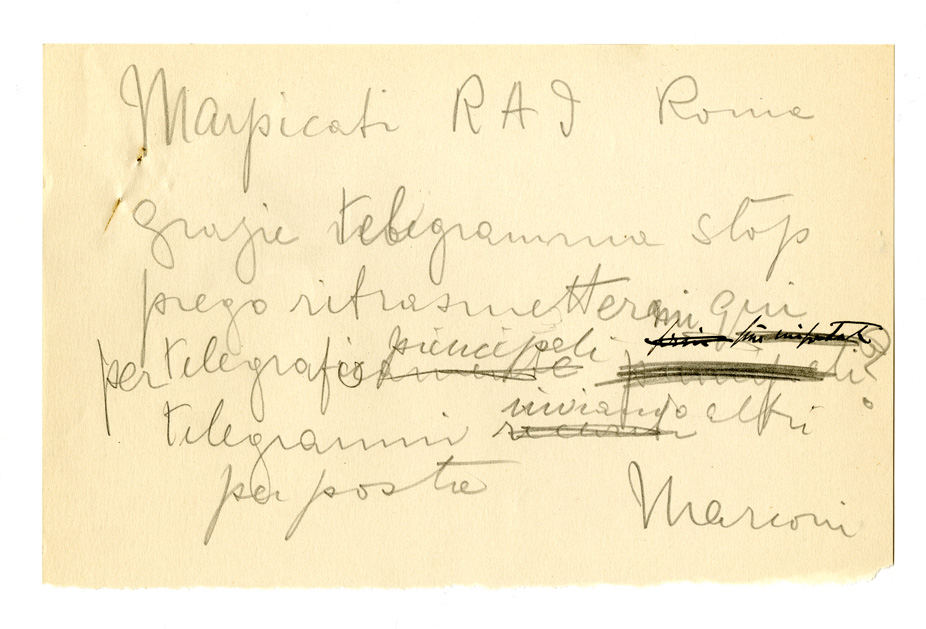 Marpicati RAI Roma
grazie telegramma stop
prego ritrasmettermi qui
più importanti
per telegrafo principali principali?
telegrammi inviando altri
per posta
Marconi